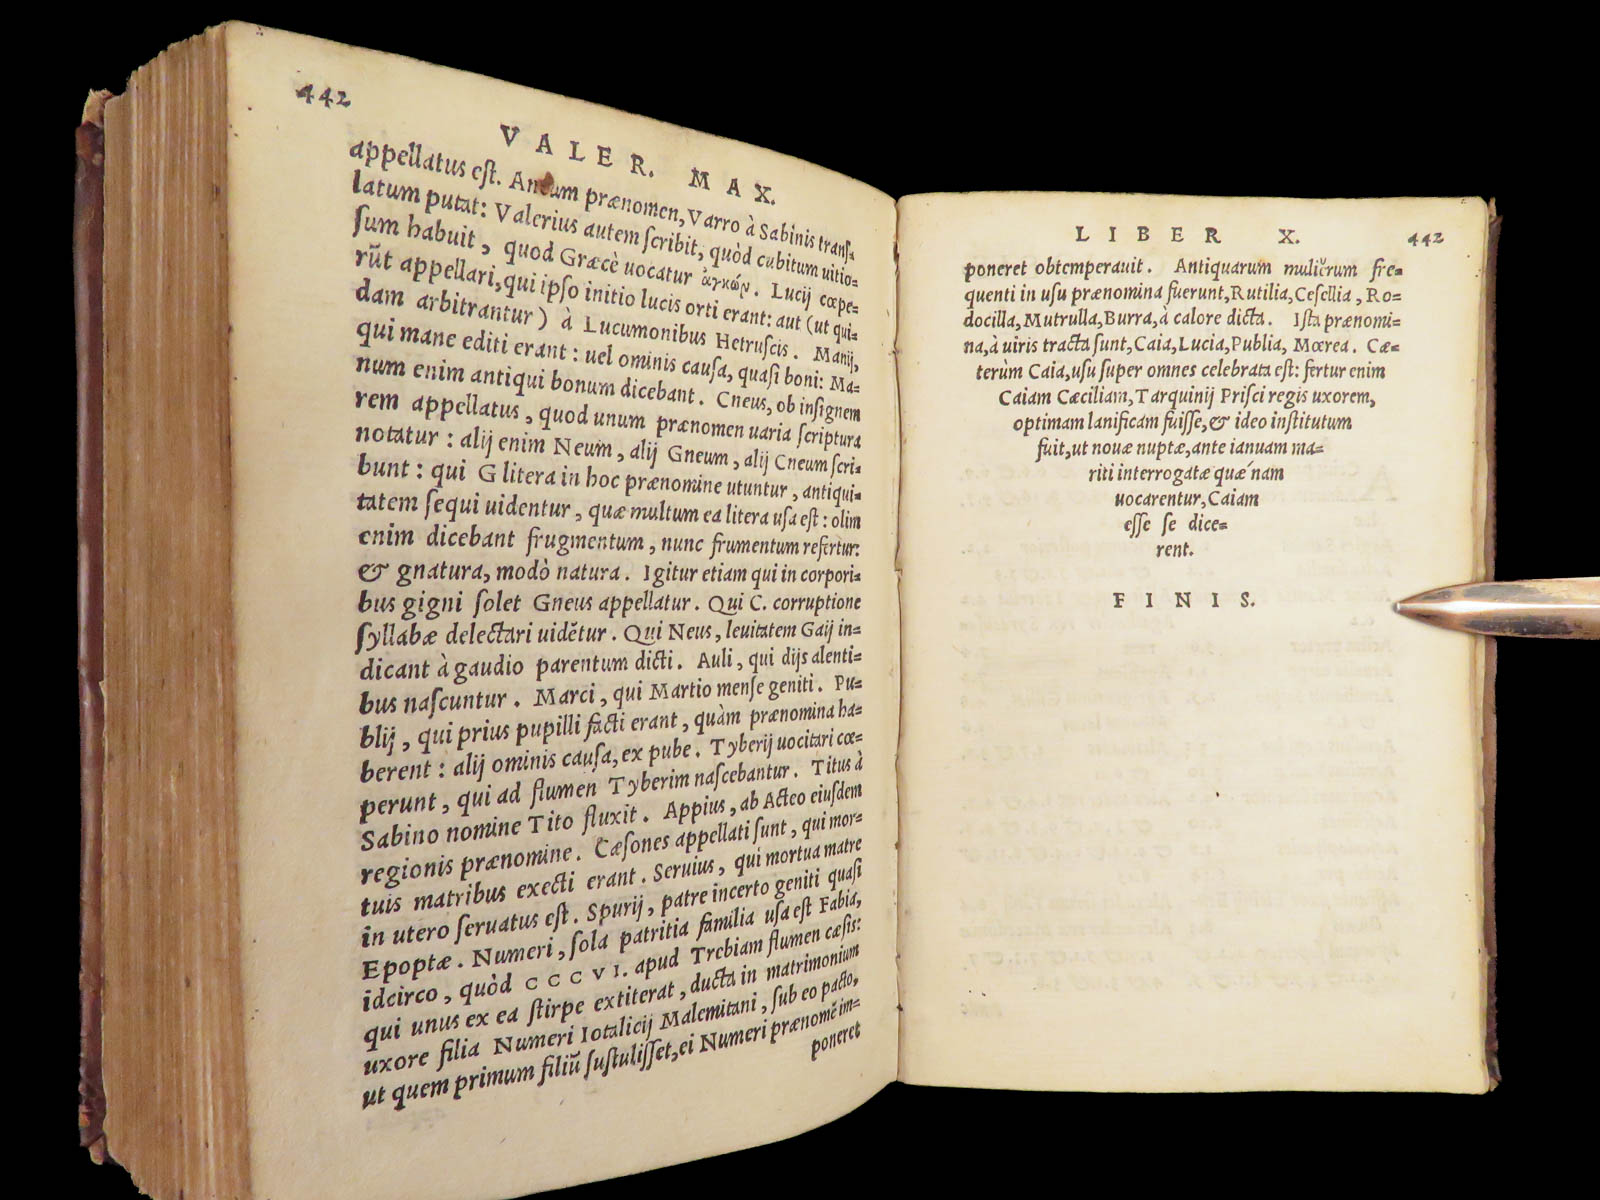 442
VALER. MAX.
appellatus est. Ancum prænomen, Varro à Sabinis trans-
latum putat: Valerius autem scribit, quòd cubitum uitio-
sum habuit, quod Græcè uocatur ἀγκών. Lucij cœpe-
rũt appellari, qui ipso initio lucis orti erant: aut (ut qui-
dam arbitrantur) à Lucumonibus Hetruscis. Manij,
qui mane editi erant: uel ominis causa, quasi boni: Ma-
num enim antiqui bonum dicebant. Cneus, ob insignem
rem appellatus, quod unum prænomen uaria scriptura
notatur: alij enim Neum, alij Gneum, alij Cneum scri-
bunt: qui G litera in hoc prænomine utuntur, antiqui-
tatem sequi uidentur, quæ multum ea litera usa est: olim
enim dicebant frugmentum, nunc frumentum refertur:
& gnatura, modò natura. Igitur etiam qui in corpori-
bus gigni solet Gneus appellatur. Qui C. corruptione
syllabæ delectari uidẽtur. Qui Neus, leuitatem Gaij in-
dicant à gaudio parentum dicti. Auli, qui dijs alenti-
bus nascuntur. Marci, qui Martio mense geniti. Pu-
blij, qui prius pupilli facti erant, quàm prænomina ha-
berent: alij ominis causa, ex pube. Tyberij uocitari cœ-
perunt, qui ad flumen Tyberim nascebantur. Titus à
Sabino nomine Tito fluxit. Appius, ab Acteo eiusdem
regionis prænomine. Cæsones appellati sunt, qui mor-
tuis matribus execti erant. Seruius, qui mortua matre
in utero seruatus est. Spurij, patre incerto geniti quasi
Epoptæ. Numeri, sola patritia familia usa est Fabia,
idcirco, quòd CCCVI. apud Trebiam flumen cæsis:
qui unus ex ea stirpe extiterat, ducta in matrimonium
uxore filia Numeri Iotalicij Malemitani, sub eo pacto,
ut quem primum filiũ sustulisset, ei Numeri prænomẽ im-
poneret
LIBER X.
442
poneret obtemperauit. Antiquarum mulierum fre-
quenti in usu prænomina fuerunt, Rutilia, Cesellia, Ro-
docilla, Mutrulla, Burra, à calore dicta. Ista prænomi-
na, à uiris tracta sunt, Caia, Lucia, Publia, Mœrea. Cæ-
terùm Caia, usu super omnes celebrata est: fertur enim
Caiam Cæciliam, Tarquinij Prisci regis uxorem,
optimam lanificam fuisse, & ideo institutum
fuit, ut nouæ nuptæ, ante ianuam ma-
riti interrogatæ quænam
uocarentur, Caiam
esse se dice-
rent.
FINIS.